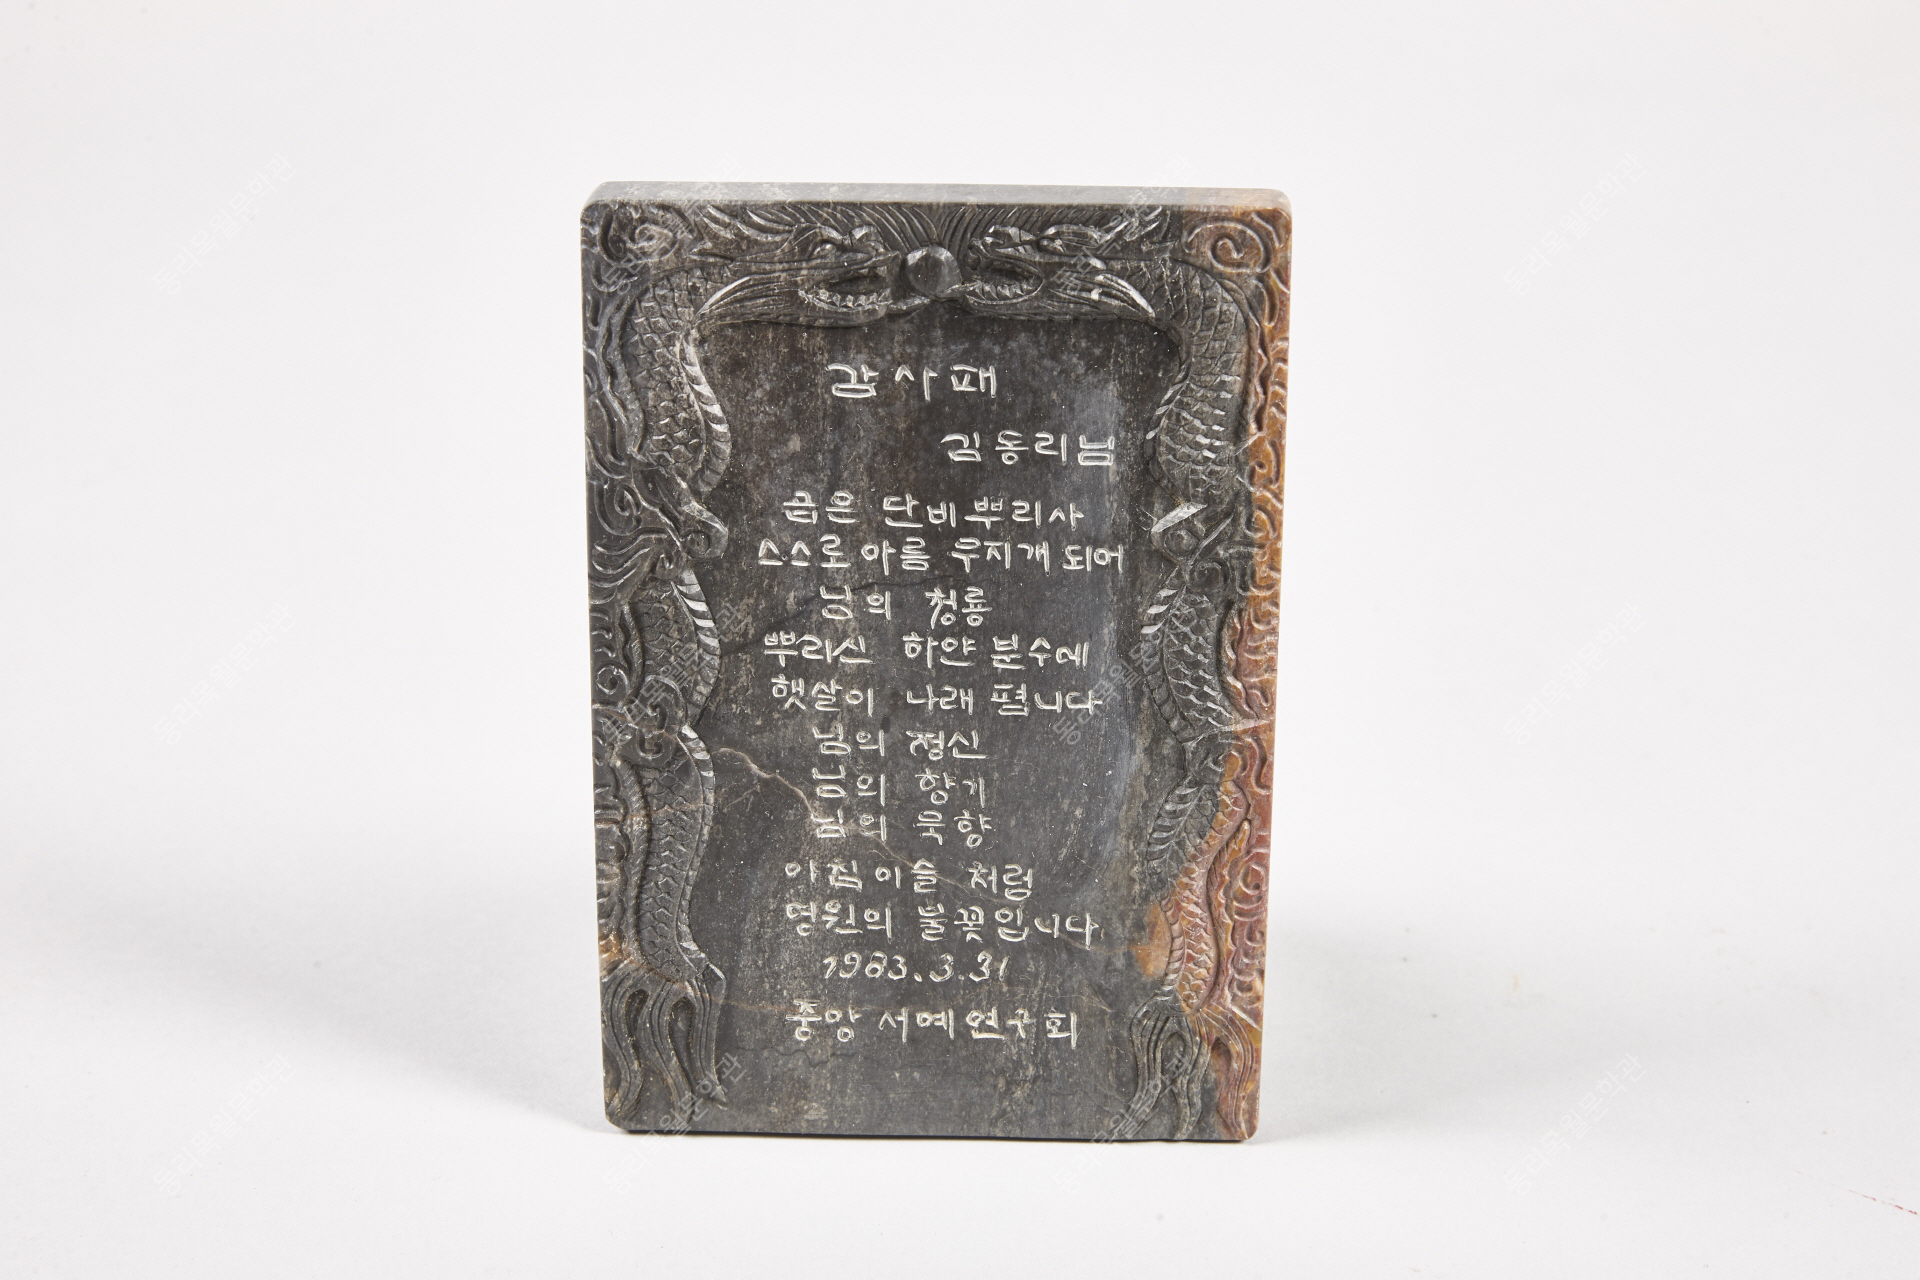 감사패
김동리님
굵은 단비뿌리사
스스로 아름 무지개 되어
님의 청룡
뿌리신 하얀 분수에
햇살이 나래 폅니다
님의 정신
님의 향기
님의 묵향
아침이슬 처럼
영원의 불꽃입니다
1983.3.31
중앙 서예연구회
동리목월문학관